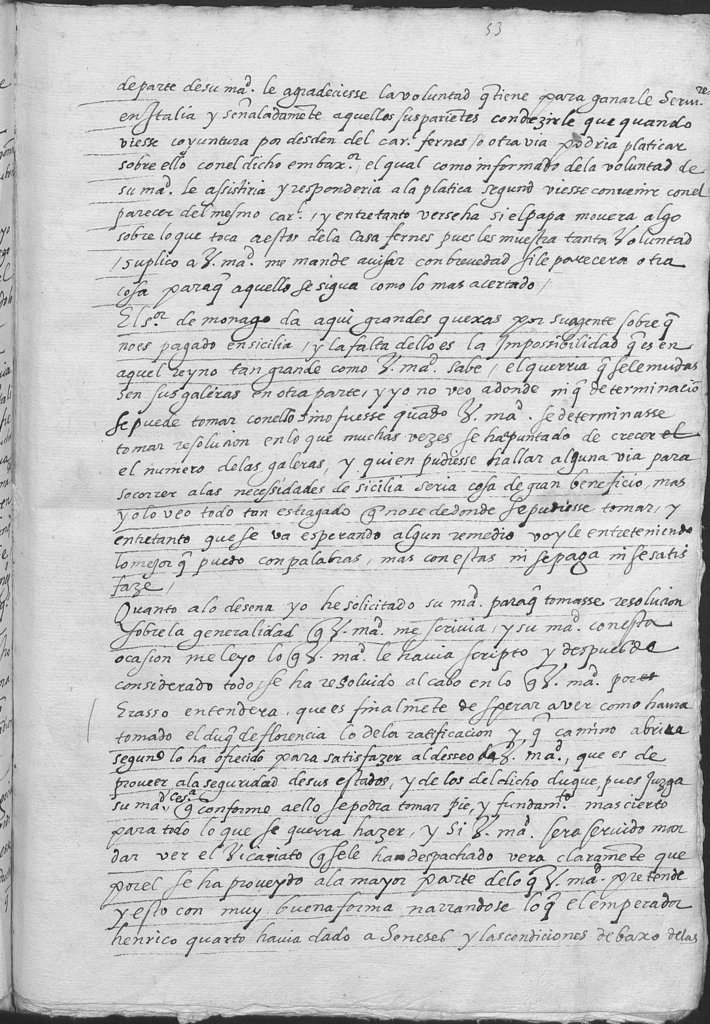 53
de parte de su mad. le agradeciesse la voluntad q̃ tiene para ganarle Serm.res
en Italia y señaladamẽte aquellos sus pariẽtes con dezirle que quando
viesse coyuntura por desden del car.l fernes, o otra via podria platicar
sobre ello con el dicho embax.or, el qual como informado dela voluntad de
su mad. le assistiria y responderia a la platica segund viesse convenir con el
parecer del mesmo car.l, y entretanto verse ha si el papa movera algo
sobre lo que toca a estos dela Casa fernes pues les muestra tanta Voluntad
suplico a V. mad. me mande avisar con brevedad si le parecera otra
cosa paraq̃ aquello se sigua como lo mas acertado,
El s.or de monago da aqui grandes quexas por su agente sobre q̃
no es pagado en sicilia, y la falta dello es la Impossibilidad q̃ es en
aquel reyno tan grande como V. mad. sabe, el querria q̃ sele mudas
sen sus galeras en otra parte, y yo no veo adonde ni q̃ determinaciõ
se puede tomar con ello sino fuesse quãdo V. mad. se determinasse
tomar resolucion en lo que muchas vezes se ha apuntado de crecer el
el numero delas galeras, y quien pudiesse hallar alguna via para
socorrer a las necessidades de sicilia seria cosa de gran beneficio, mas
yo lo veo todo tan estragado q̃ no se de donde se pudiesse tomar, y
entretanto que se va esperando algun remedio voy le entreteniendo
lo mejor q̃ puedo con palabras, mas con estas ni se paga ni se satis
faze,
Quanto a lo de sena yo he solicitado su mad. paraq̃ tomasse resolucion
sobre la generalidad q̃ V. mad. me scrivia, y su mad. con esta
ocasion me leyo lo q̃ V. mad. le havia scripto y despues de
considerado todo, se ha resolvido al cabo en lo q̃ V. mad. por
Erasso entendera, que es finalmẽte de sperar a ver como havra
tomado el duq̃ de florencia lo dela ratificacion y q̃ camino abrira
segund lo ha ofrecido para satisfazer al desseo de V. mad., que es de
proveer a la seguridad de sus estados, y de los del dicho duque, pues Juzga
su mad. Ces.a q̃ conforme a ello se podra tomar pie, y fundam.to mas cierto
para todo lo que se querra hazer, y si V. mad. sera servido man
dar ver el Vicariato q̃ sele ha despachado vera claramẽte que
por el se ha proveydo a la mayor parte delo q̃ V. mad. pretende
y esto con muy buena forma narrandose lo q̃ el emperador
henrico quarto havia dado a Seneses y las condiciones de baxo delas